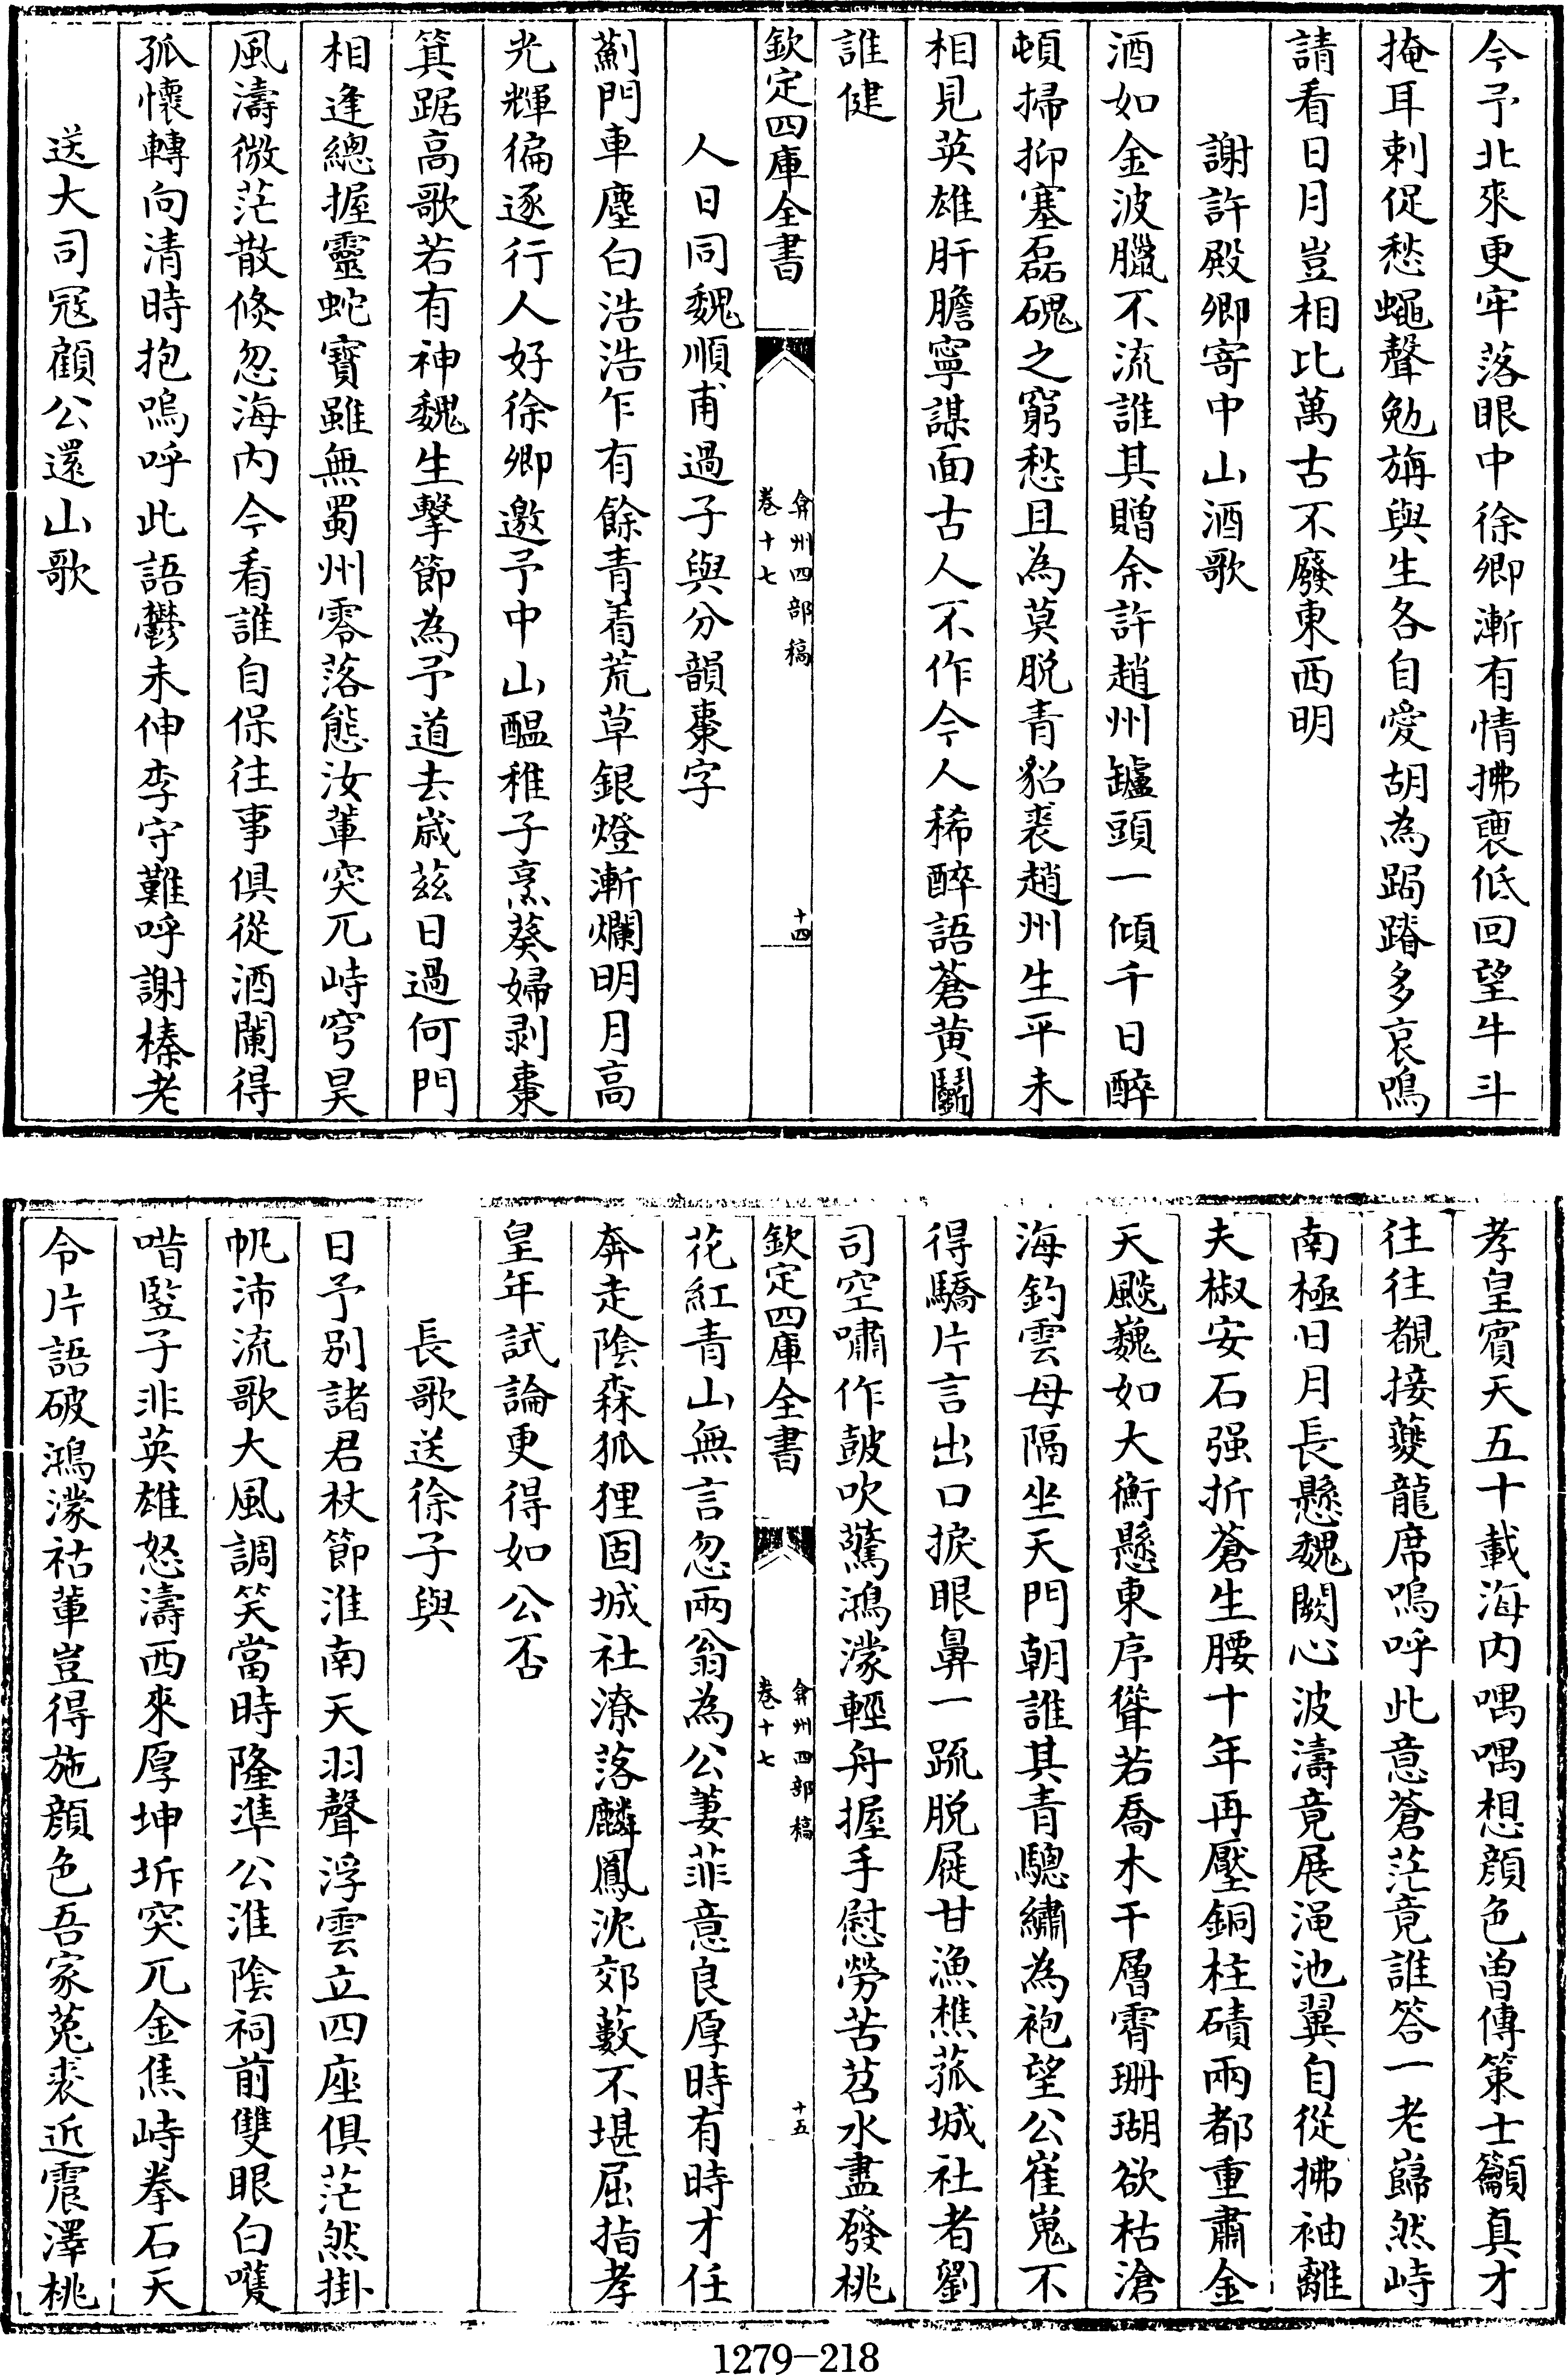 今予北來更牢落眼中徐卿漸有情拂裏低回望牛斗
掩耳刺促愁蠅聲勉旃與生各自愛胡為跼蹐多哀鳴
請看日月豈相比萬古不廢東西明
謝許殿卿寄中山酒歌
酒如金波臘不流誰其贈余許趙州罏頭一傾千日醉
頓掃抑塞磊磈之窮愁且為莫脱青貂裘趙州生平未
相見英雄肝膽寧謀面古人不作今人稀醉語蒼黄鬭
誰健
欽定四庫全書
弇州四部稿
卷十七
十四
人日同魏順甫過子與分韻棗字
薊門車塵白浩浩乍有餘青着荒草銀燈漸爛明月高
光輝偏逐行人好徐卿邀予中山醖稚子烹葵婦剥棗
箕踞高歌若有神魏生擊節為予道去歲兹日過何門
相逢總握靈蛇寶雖無蜀州零落態汝輩突兀峙穹昊
風濤微茫散倏忽海内今看誰自保往事俱從酒闌得
孤懷轉向清時抱嗚呼此語鬱未伸李守難呼謝榛老
送大司寇顧公還山歌
孝皇賓天五十載海内喁喁想顔色曽傳策士籲真才
往往覩接夔龍席嗚呼此意蒼茫竟誰答一老巋然峙
南極日月長懸魏闕心波濤竟展澠池翼自從拂袖離
夫椒安石强折蒼生腰十年再壓銅柱磧兩都重肅金
天飈巍如大衡懸東序聳若喬木干層霄珊瑚欲枯滄
海釣雲母隔坐天門朝誰其青驄繡為袍望公崔嵬不
得驕片言出口捩眼鼻一䟽脱屣甘漁樵菰城社者劉
司空嘯作皷吹驚鴻濛輕舟握手慰勞苦苕水盡發桃
欽定四庫全書
弇州四部稿
卷十七
十五
花紅青山無言忽兩翁為公萋菲意良厚時有時才任
奔走陰森狐狸固城社潦落麟鳳沈郊藪不堪屈指孝
皇年試論更得如公否
長歌送徐子與
日予别諸君杖節淮南天羽聲浮雲立四座俱茫然掛
帆沛流歌大風調笑當時隆凖公淮陰祠前雙眼白嘆
喈竪子非英雄怒濤西來厚坤坼突兀金焦峙拳石天
令片語破鴻濛祜輩豈得施顔色吾家菟裘近震澤桃
1279-218